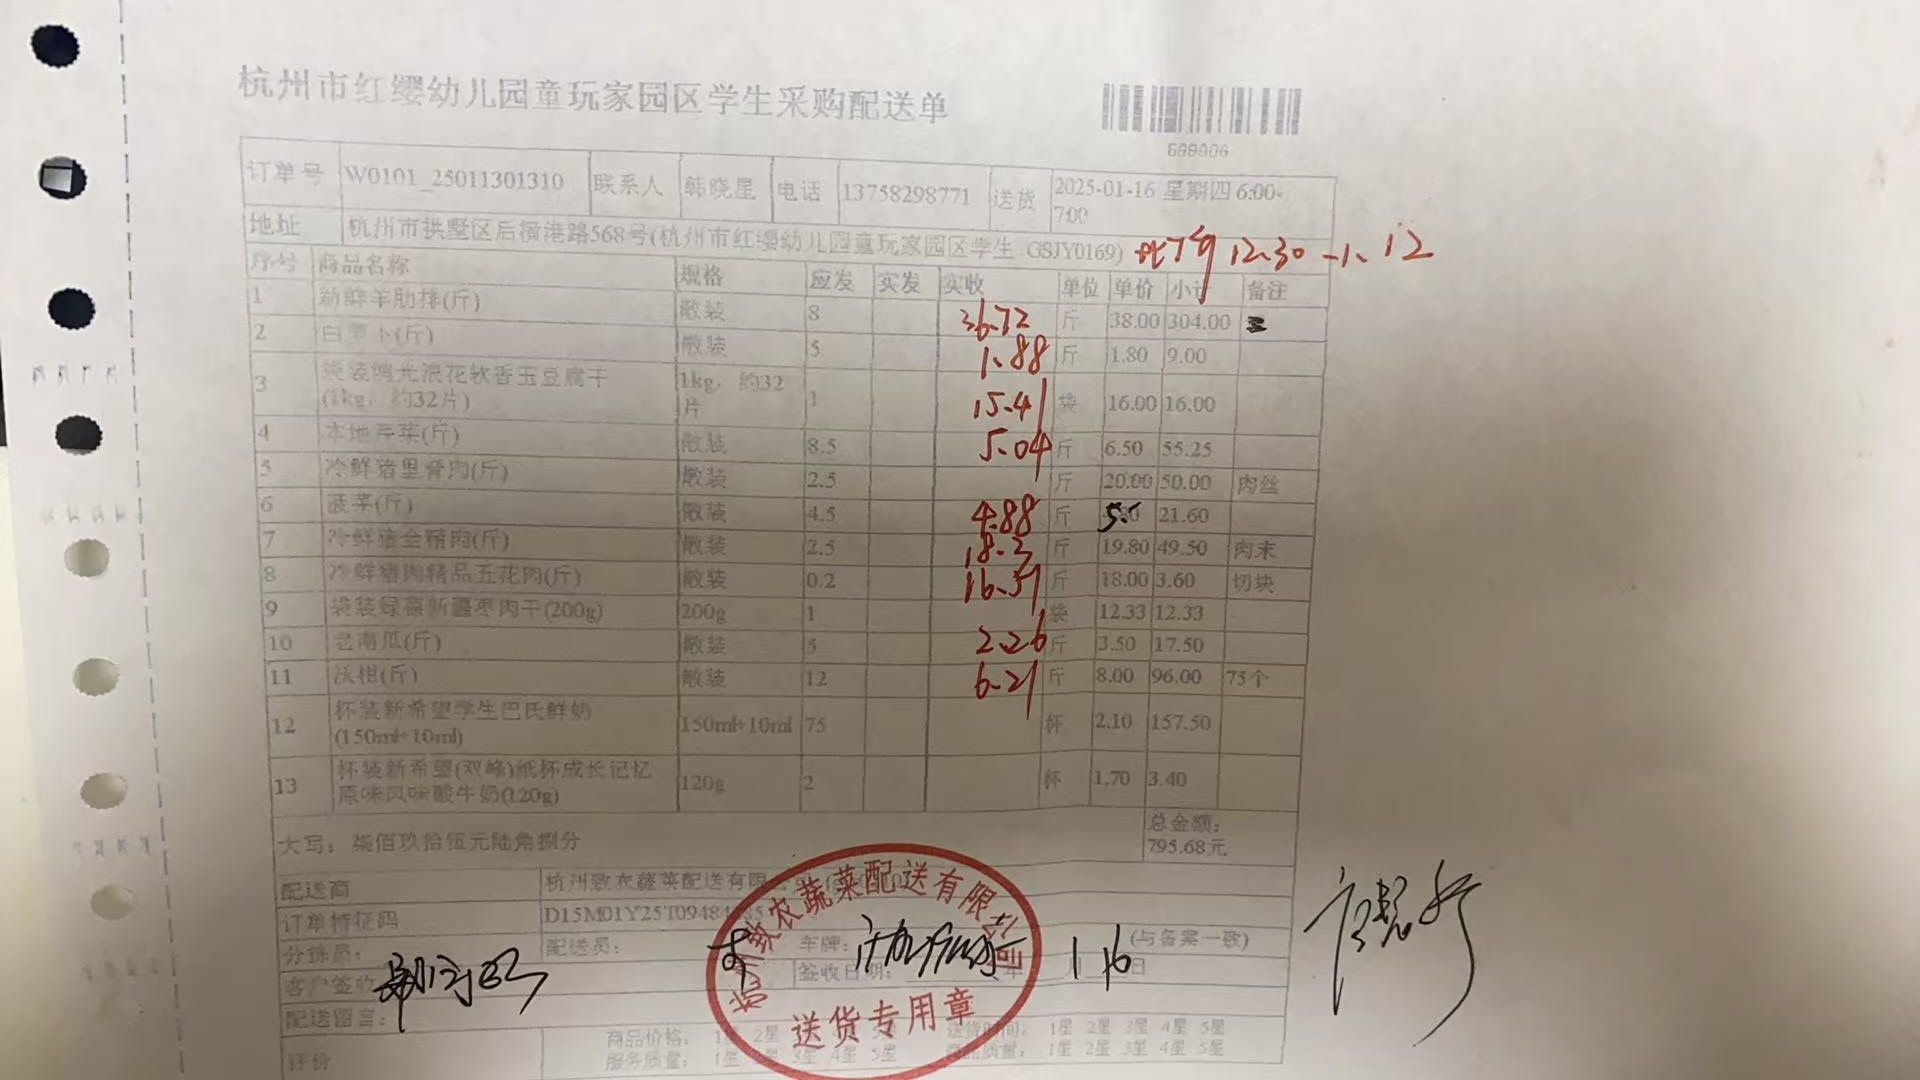 杭州市红缨幼儿园童玩家园区学生采购配送单
699906
订单号 W0101_25011301310 联系人 韩晓星 电话 13758298771 送货 2025-01-16 星期四 6:00-7:00
地址 杭州市拱墅区后横港路568号(杭州市红缨幼儿园童玩家园区学生 GSJY0169) 12.30-1.12
序号 商品名称 规格 应发 实发 实收 单位 单价 小计 备注
1 新鲜羊肋排(斤) 散装 8 36.72 斤 38.00 304.00
2 白萝卜(斤) 散装 5 1.88 斤 1.80 9.00
3 袋装鸿光浪花软香玉豆腐干(1kg，约32片) 1kg，约32片 1 15.41 袋 16.00 16.00
4 本地芹菜(斤) 散装 8.5 5.04 斤 6.50 55.25
5 冷鲜猪里脊肉(斤) 散装 2.5 斤 20.00 50.00 肉丝
6 菠菜(斤) 散装 4.5 4.88 斤 21.60
7 冷鲜猪全精肉(斤) 散装 2.5 18.2 斤 19.80 49.50 肉末
8 冷鲜猪肉精品五花肉(斤) 散装 0.2 16.51 斤 18.00 3.60 切块
9 袋装绿薇新疆枣肉干(200g) 200g 1 袋 12.33 12.33
10 老南瓜(斤) 散装 5 2.26 斤 3.50 17.50
11 沃柑(斤) 散装 12 6.21 斤 8.00 96.00 75个
12 杯装新希望学生巴氏鲜奶(150ml+10ml) 150ml+10ml 75 杯 2.10 157.50
13 杯装新希望(双峰)纸杯成长记忆原味风味酸牛奶(120g) 120g 2 杯 1.70 3.40
大写：柒佰玖拾伍元陆角捌分 总金额：795.68元
配送商 杭州致农蔬菜配送有限公司
订单特征码 D15M01Y25T09484
分拣员： 配送员： 车牌： (与备案一致)
客户签收 签收日期： 1 16 日
配送留言：
评价 商品价格： 1星 2星 3星 4星 5星 送货时间： 1星 2星 3星 4星 5星
服务质量： 1星 2星 3星 4星 5星 商品质量： 1星 2星 3星 4星 5星
杭州致农蔬菜配送有限公司
送货专用章